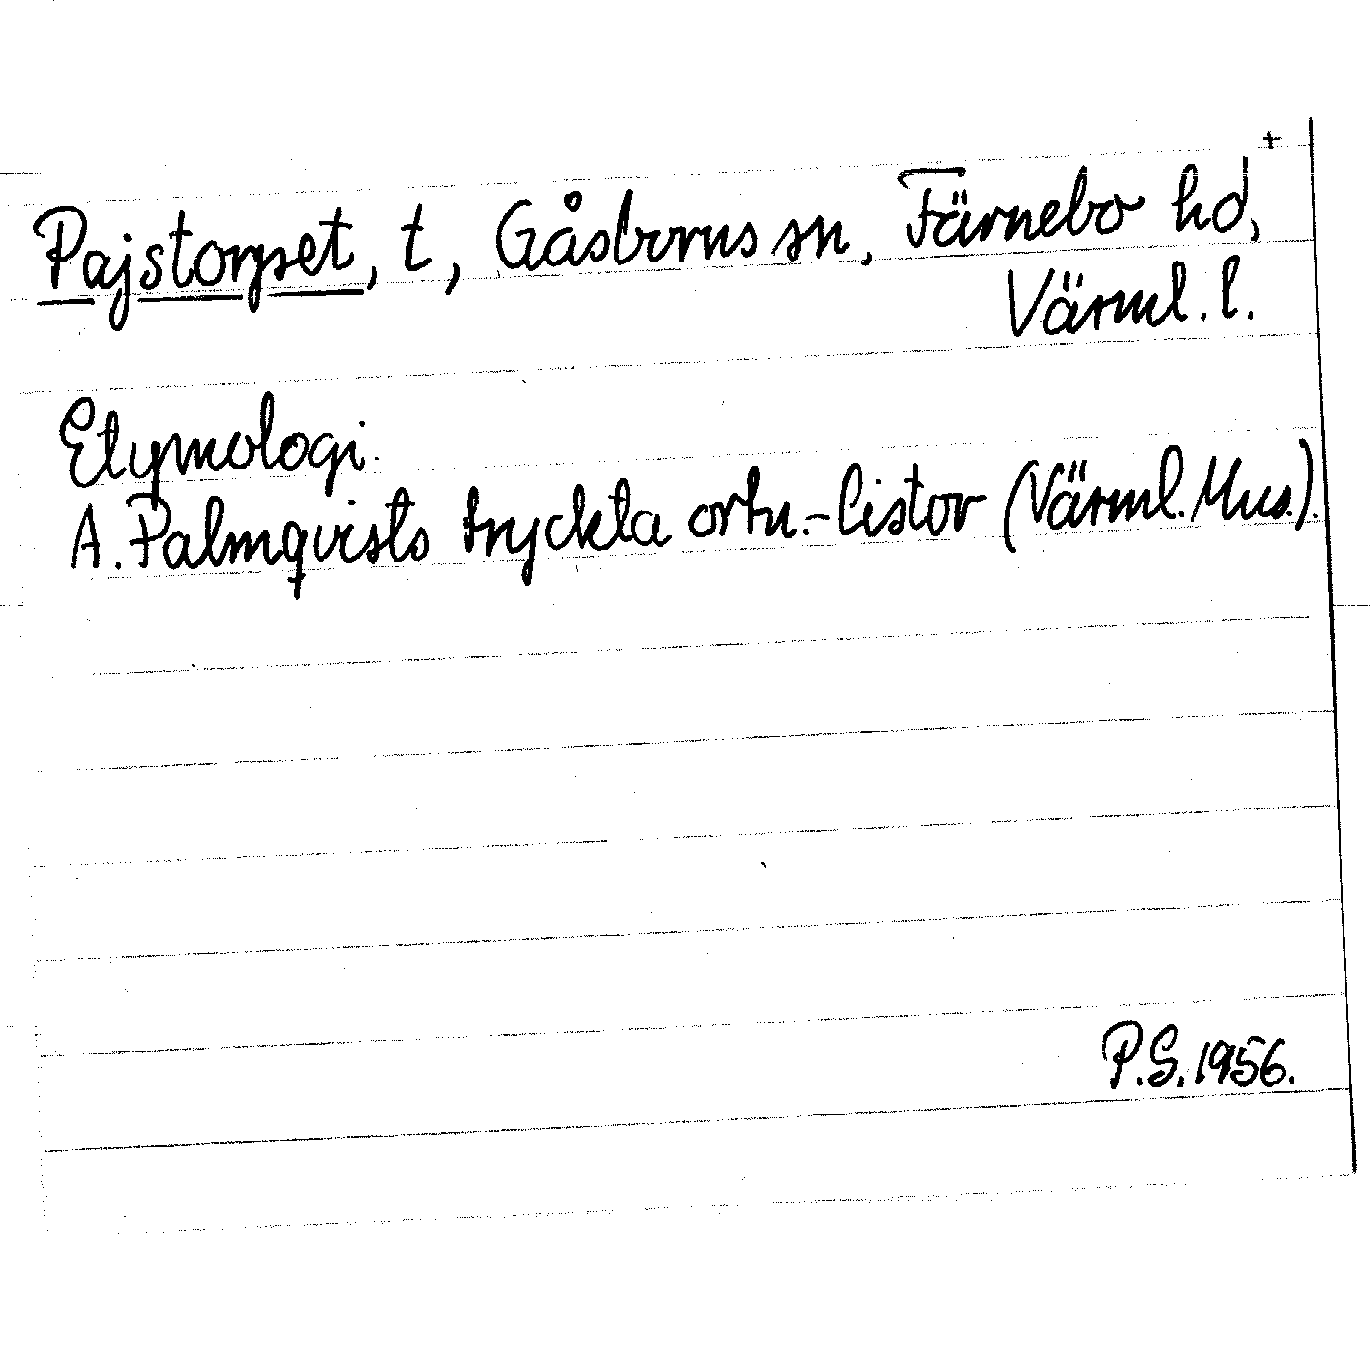 +
Pajstorpet, t, Gåsborns sn, Färnebo hd,
Värml. l.
Etymologi.
A. Palmqvists tryckta ortn.-listor (Värml. Mus.).
P.S. 1956.